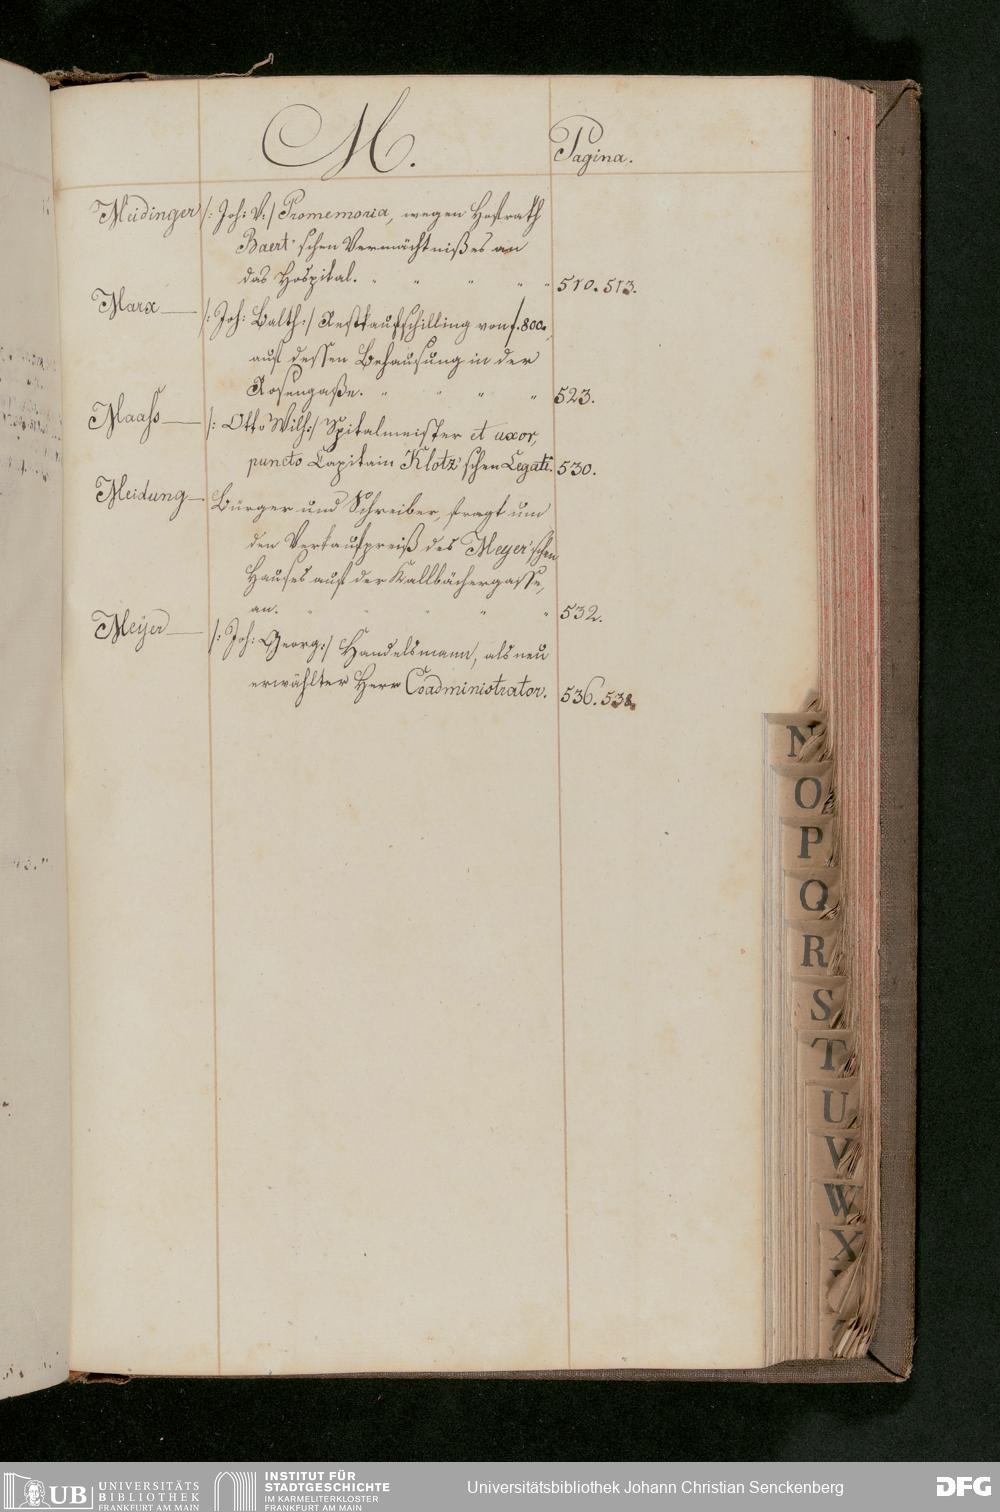 M.
Pagina.
Meidinger /: Joh: V:/ Promemoria, wegen Hofrath
Baert'schen Vermächtnißes an
das Hospital. " " " " " 510. 513.
Marx — /: Joh: Balth:/ Restkaufschilling von f. 800.
auf dessen Behausung in der
Rosengaße. " " " " 523.
Maass — /: Otto Wilh:/ Spitalmeister et uxor,
puncto Capitain Klotz'schen Legati. 530.
Meidung — Bürger und Schreiber, fragt um
den Verkaufpreiß des Meyer'schen
Hauses auf der Kallbächergasse,
an. " " " " " 532.
Meyer — /: Joh: Georg:/ Handelsmann, als neu
erwählter Herr Coadministrator. 536. 538.
N
O
P
Q
R
S
T
U
V
W
X
UB UNIVERSITÄTS
BIBLIOTHEK
FRANKFURT AM MAIN
INSTITUT FÜR
STADTGESCHICHTE
IM KARMELITERKLOSTER
FRANKFURT AM MAIN
Universitätsbibliothek Johann Christian Senckenberg
DFG